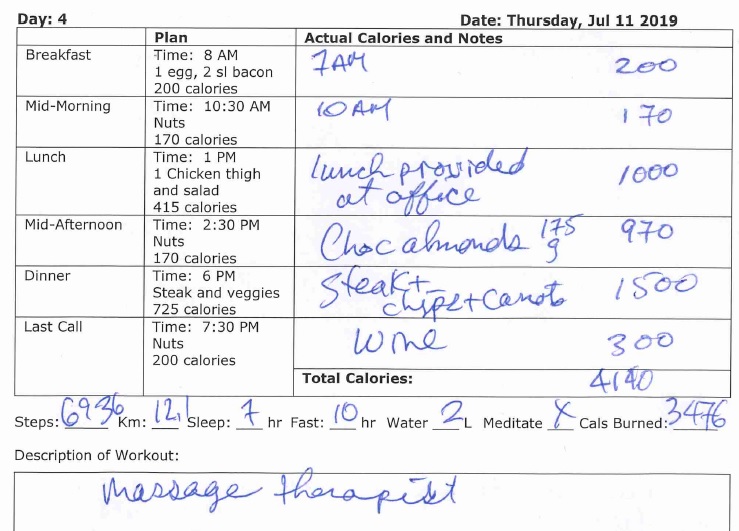 Day: 4 Date: Thursday, Jul 11 2019
Plan Actual Calories and Notes
Breakfast Time: 8 AM 7AM 200
1 egg, 2 sl bacon
200 calories
Mid-Morning Time: 10:30 AM 10 AM 170
Nuts
170 calories
Lunch Time: 1 PM lunch provided 1000
1 Chicken thigh at office
and salad
415 calories
Mid-Afternoon Time: 2:30 PM Choc almonds 175 g 970
Nuts
170 calories
Dinner Time: 6 PM Steak + 1500
Steak and veggies chips + Carrots
725 calories
Last Call Time: 7:30 PM Wine 300
Nuts
200 calories
Total Calories: 4140
Steps: 6936 Km: 12,1 Sleep: 7 hr Fast: 10 hr Water 2 L Meditate X Cals Burned: 3476
Description of Workout:
Massage therapist